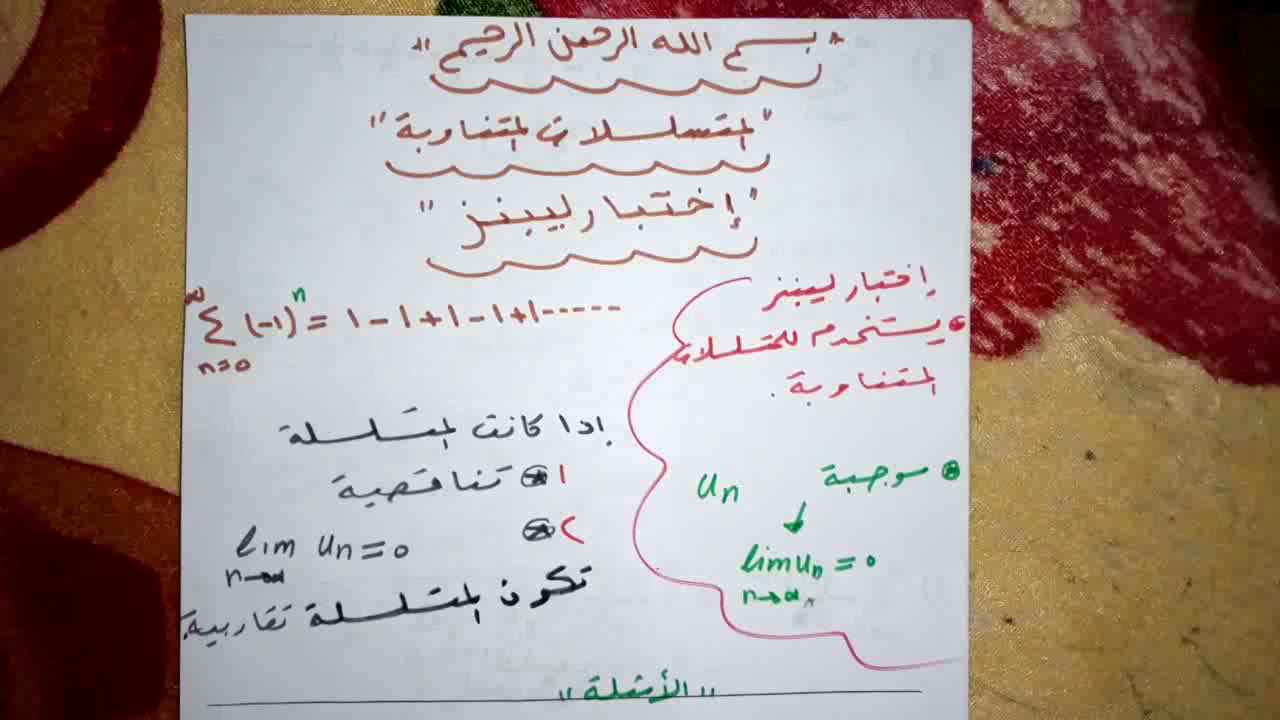 * بسم الله الرحمن الرحيم "
" المتسلسلات المتناوبة "
" إختبار ليبنز "
∞
Σ (-1)^n = 1-1+1-1+1-----
n=0
إختبار ليبنز
• يستخدم للمتسلسلات
المتناوبة.
• موجبة Un
↓
lim Un = 0
n→∞
إذا كانت المتسلسلة
١ * تناقصية
٢ * lim Un = 0
n→∞
تكون المتسلسلة تقاربية.
" الأمثلة "